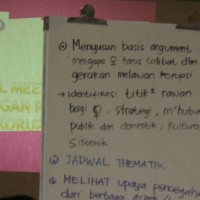 Menyusun basis argument,
mengapa ♀ harus terlibat dlm
gerakan melawan korupsi
→ identifikasi titik² rawan
bagi ♀. Strategi, m'hubu
publik dan domestik, kulture
Sistemik
JADWAL THEMATIK
MELIHAT upaya pencegaha
dari berbagai
L MEE
GAN P
KORUP